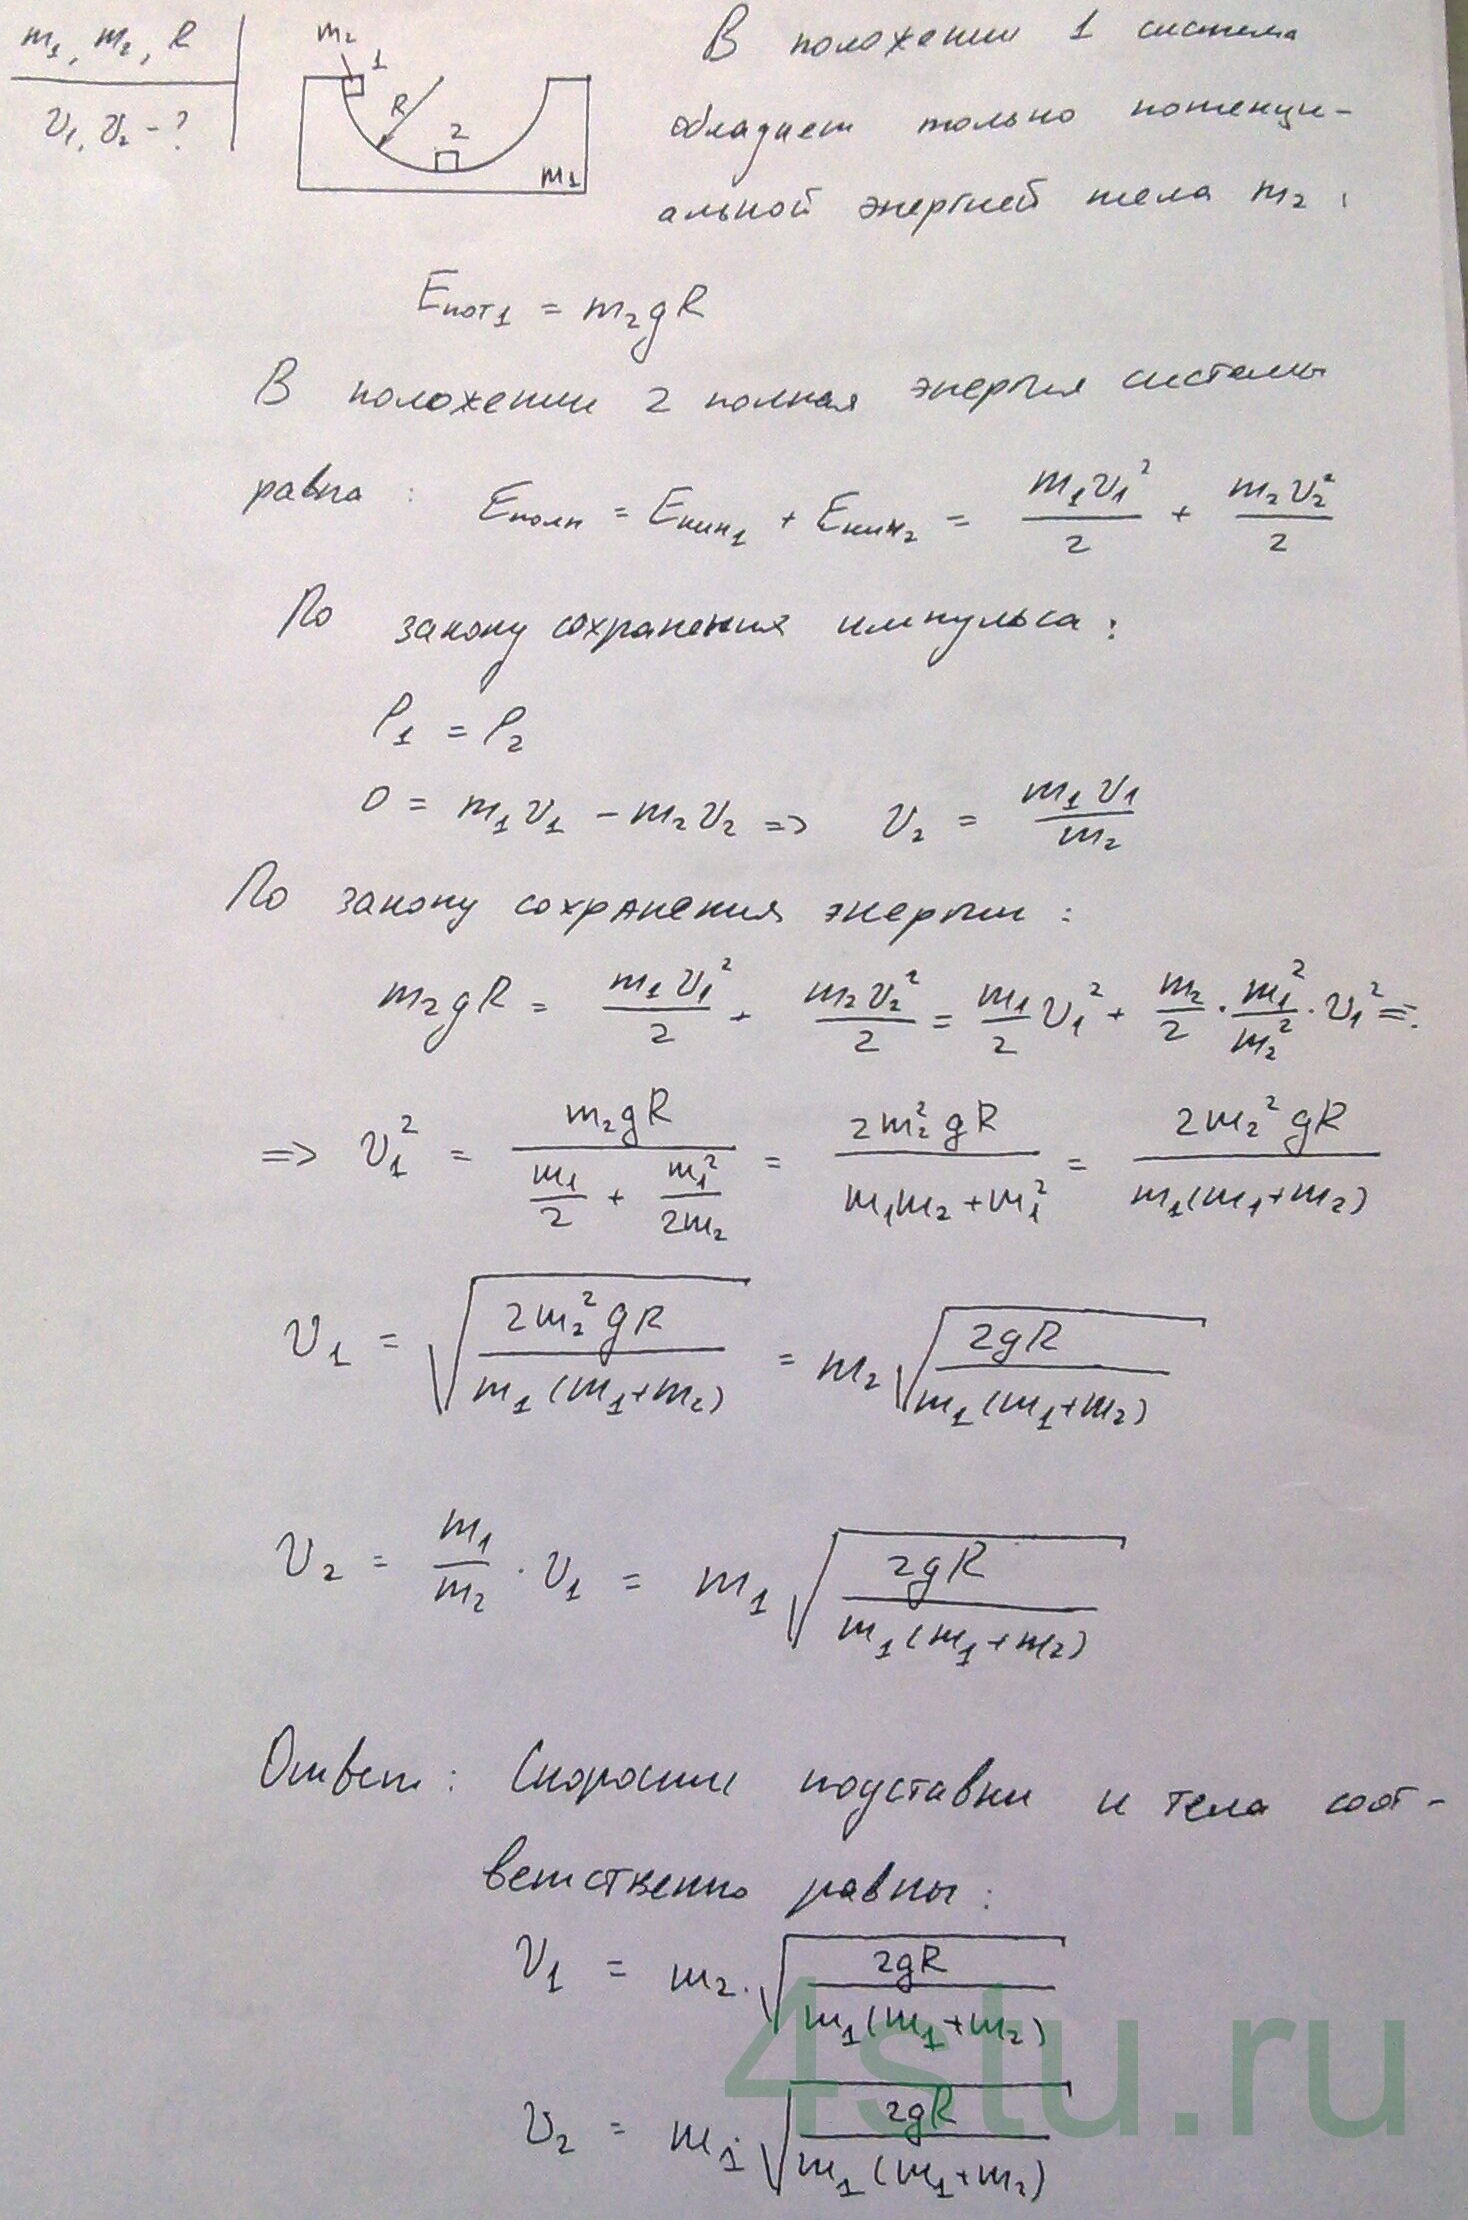 m₁, m₂, R
v₁, v₂ - ?
m₂
1
R
2
m₁
В положении 1 система
обладает только потенци-
альной энергией тела m₂:
Eпот₁ = m₂gR
В положении 2 полная энергия системы
равна: Eполн = Eкин₁ + Eкин₂ = m₁v₁²/2 + m₂v₂²/2
По закону сохранения импульса:
P₁ = P₂
0 = m₁v₁ - m₂v₂ => v₂ = m₁v₁/m₂
По закону сохранения энергии:
m₂gR = m₁v₁²/2 + m₂v₂²/2 = m₁/2 v₁² + m₂/2 · m₁²/m₂² · v₁² =>
=> v₁² = m₂gR/(m₁/2 + m₁²/2m₂) = 2m₂²gR/(m₁m₂+m₁²) = 2m₂²gR/(m₁(m₁+m₂))
v₁ = √(2m₂²gR/(m₁(m₁+m₂))) = m₂√(2gR/(m₁(m₁+m₂)))
v₂ = m₁/m₂ · v₁ = m₁√(2gR/(m₁(m₁+m₂)))
Ответ: Скорости подставки и тела соот-
ветственно равны:
v₁ = m₂·√(2gR/(m₁(m₁+m₂)))
v₂ = m₁·√(2gR/(m₁(m₁+m₂)))
4stu.ru